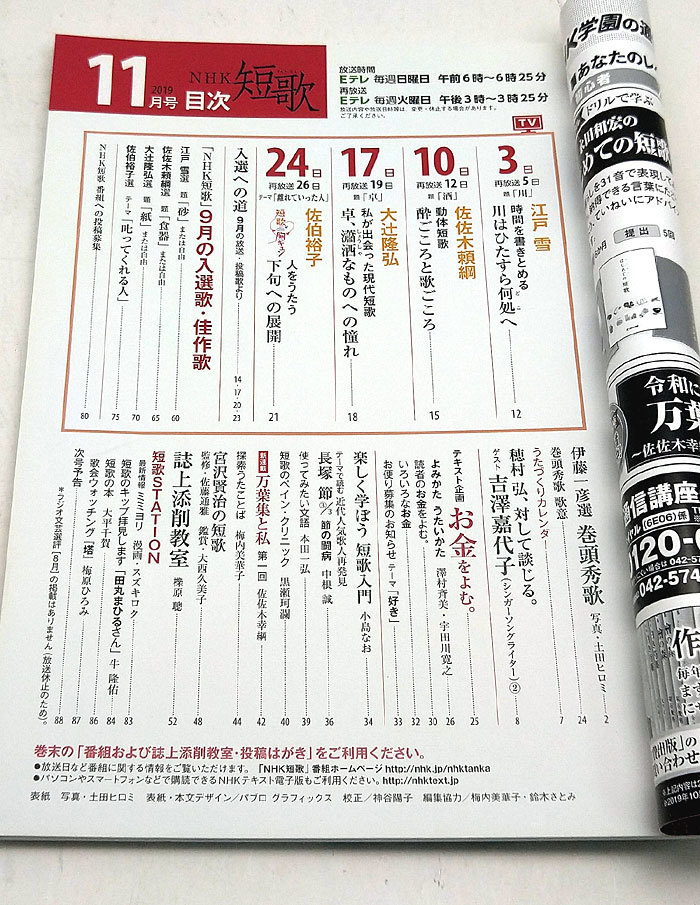 11
2019
月号 目次
NHK 短歌
放送時間
Eテレ 毎週日曜日 午前6時〜6時25分
再放送
Eテレ 毎週火曜日 午後3時〜3時25分
放送内容や放送日時等は、変更・休止する場合があります。
ご了承ください。
TV
3日
再放送5日
題「川」
江戸 雪
時間を書きとめる
川はひたすら何処へ
12
10日
再放送12日
題「酒」
佐佐木頼綱
動体短歌
酔ごころと歌ごころ
15
17日
再放送19日
題「卓」
大辻隆弘
私が出会った現代短歌
卓、瀟洒なものへの憧れ
18
24日
再放送26日
テーマ「離れていった人」
佐伯裕子
短歌de胸キュン
人をうたう
下句への展開
21
入選への道 9月の放送・投稿歌より
14・17・20
23
「NHK短歌」9月の入選歌・佳作歌
江戸 雪選 題「砂」または自由
60
佐佐木頼綱選 題「食器」または自由
65
大辻隆弘選 題「紙」または自由
70
佐伯裕子選 テーマ「叱ってくれる人」
75
NHK短歌 番組への投稿募集
80
伊藤一彦選 巻頭秀歌 写真・土田ヒロミ
2
巻頭秀歌 歌意
24
うたづくりカレンダー
7
穂村弘、対して談じる。
ゲスト 吉澤嘉代子(シンガーソングライター)②
8
テキスト企画 お金をよむ。
25
よみかた うたいかた 澤村斉美・宇田川寛之
26
読者のお金をよむ。
30
いろいろなお金
32
お便り募集のお知らせ テーマ「好き」
33
楽しく学ぼう 短歌入門 小島なお
34
テーマで読む 近代人気歌人再発見
長塚 節 節の闘病 中根 誠
36
使ってみたい文語 本田一弘
39
短歌のペイン・クリニック 黒瀬珂瀾
40
新連載 万葉集と私 第一回 佐佐木幸綱
42
探索うたことば 梅内美華子
44
宮沢賢治の短歌
監修・佐藤通雅 鑑賞・大西久美子
48
誌上添削教室 櫟原 聰
52
短歌STATION
最新情報 ミミヨリ 漫画・スズキロク
83
短歌のキップ拝見します「田丸まひるさん」牛 隆佑
84
短歌の本 大平千賀
86
歌会ウォッチング「塔」 梅原ひろみ
87
次号予告
88
*ラジオ文芸選評「8月」の掲載はありません(放送休止のため)。
巻末の「番組および誌上添削教室・投稿はがき」をご利用ください。
●放送日など番組に関する情報をご覧いただけます。「NHK短歌」番組ホームページ http://nhk.jp/nhktanka
●パソコンやスマートフォンなどで購読できるNHKテキスト電子版もご利用ください。 http://nhktext.jp
表紙 写真・土田ヒロミ 表紙・本文デザイン/パブロ グラフィックス 校正/神谷陽子 編集協力/梅内美華子・鈴木さとみ
学園の通
あなたのし
ドリルで学ぶ
和宏の
めての短歌
を31音で表現し
提出 5回
令和に
万葉
〜佐佐木幸
通信講座
(6E06)係
0120-0
042-574
042-57
作